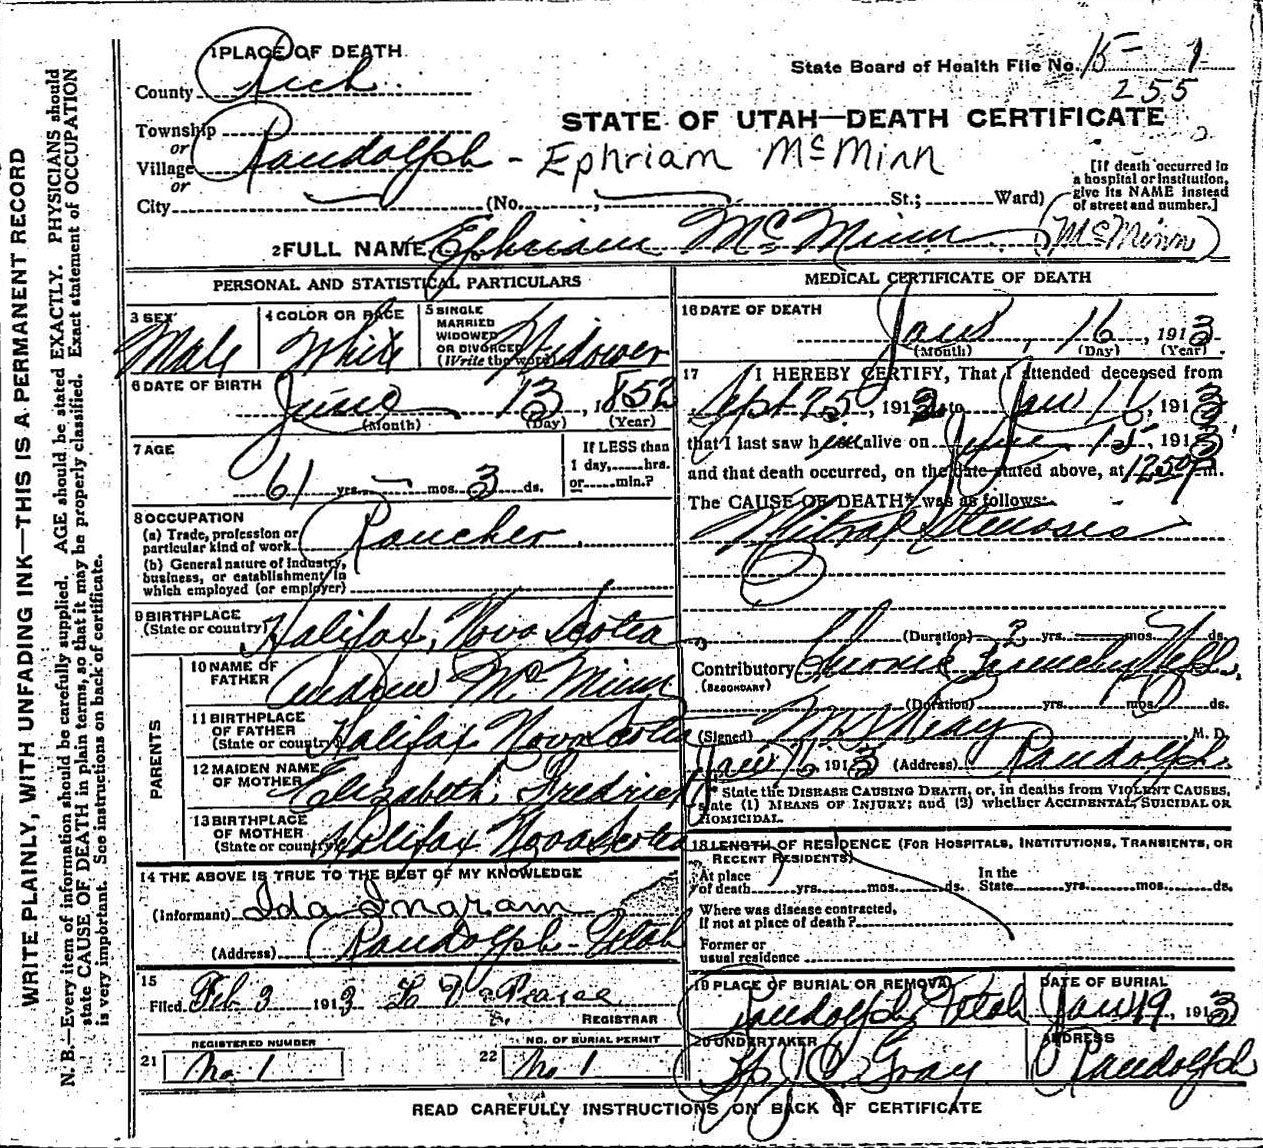 WRITE PLAINLY, WITH UNFADING INK—THIS IS A PERMANENT RECORD
N. B.—Every item of information should be carefully supplied. AGE should be stated EXACTLY. PHYSICIANS should
state CAUSE OF DEATH in plain terms, so that it may be properly classified. Exact statement of OCCUPATION
is very important. See instructions on back of certificate.
1 PLACE OF DEATH
County Rich
Township
or
Village Randolph - Ephriam McMinn
or
City (No. , St.; Ward)
State Board of Health File No. 15- 1
255
STATE OF UTAH—DEATH CERTIFICATE
[If death occurred in
a hospital or institution,
give its NAME instead
of street and number.]
2 FULL NAME Ephriam McMinn (McMinn)
PERSONAL AND STATISTICAL PARTICULARS
3 SEX Male
4 COLOR OR RACE White
5 SINGLE
MARRIED
WIDOWED
OR DIVORCED
(Write the word) Widower
6 DATE OF BIRTH June 13, 1852
(Month) (Day) (Year)
7 AGE
61 yrs. - mos. 3 ds.
If LESS than
1 day, hrs.
or min.?
8 OCCUPATION
(a) Trade, profession or
particular kind of work Rancher
(b) General nature of Industry,
business, or establishment in
which employed (or employer)
9 BIRTHPLACE
(State or country) Halifax, Nova Scotia
PARENTS
10 NAME OF
FATHER Andrew McMinn
11 BIRTHPLACE
OF FATHER
(State or country) Halifax Nova Scotia
12 MAIDEN NAME
OF MOTHER Elizabeth Fredrick
13 BIRTHPLACE
OF MOTHER
(State or country) Halifax Nova Scotia
14 THE ABOVE IS TRUE TO THE BEST OF MY KNOWLEDGE
(Informant) Ida Ingram
(Address) Randolph - Utah
15
Filed Feb 3 1913 Pearce
REGISTRAR
REGISTERED NUMBER
21 No. 1
NO. OF BURIAL PERMIT
22 No 1
MEDICAL CERTIFICATE OF DEATH
16 DATE OF DEATH
16, 1913
(Month) (Day) (Year)
17 I HEREBY CERTIFY, That I attended deceased from
Sept 25, 191 to Jan 1913
that I last saw h alive on 15, 1913
and that death occurred, on the date stated above, at 1250 m.
The CAUSE OF DEATH* was as follows:
Mitral Stenosis
(Duration) 2 yrs. mos. ds.
Contributory Chronic
(SECONDARY)
(Duration) yrs. mos. ds.
(Signed) M. D.
Jan 1913 (Address) Randolph
* State the DISEASE CAUSING DEATH, or, in deaths from VIOLENT CAUSES,
state (1) MEANS OF INJURY; and (2) whether ACCIDENTAL, SUICIDAL OR
HOMICIDAL.
18 LENGTH OF RESIDENCE (FOR HOSPITALS, INSTITUTIONS, TRANSIENTS, OR
RECENT RESIDENTS)
At place
of death yrs. mos. ds.
In the
State yrs. mos. ds.
Where was disease contracted,
if not at place of death?
Former or
usual residence
19 PLACE OF BURIAL OR REMOVAL
Randolph, Utah
DATE OF BURIAL
Jan 19, 1913
20 UNDERTAKER
Gray
ADDRESS
Randolph
READ CAREFULLY INSTRUCTIONS ON BACK OF CERTIFICATE